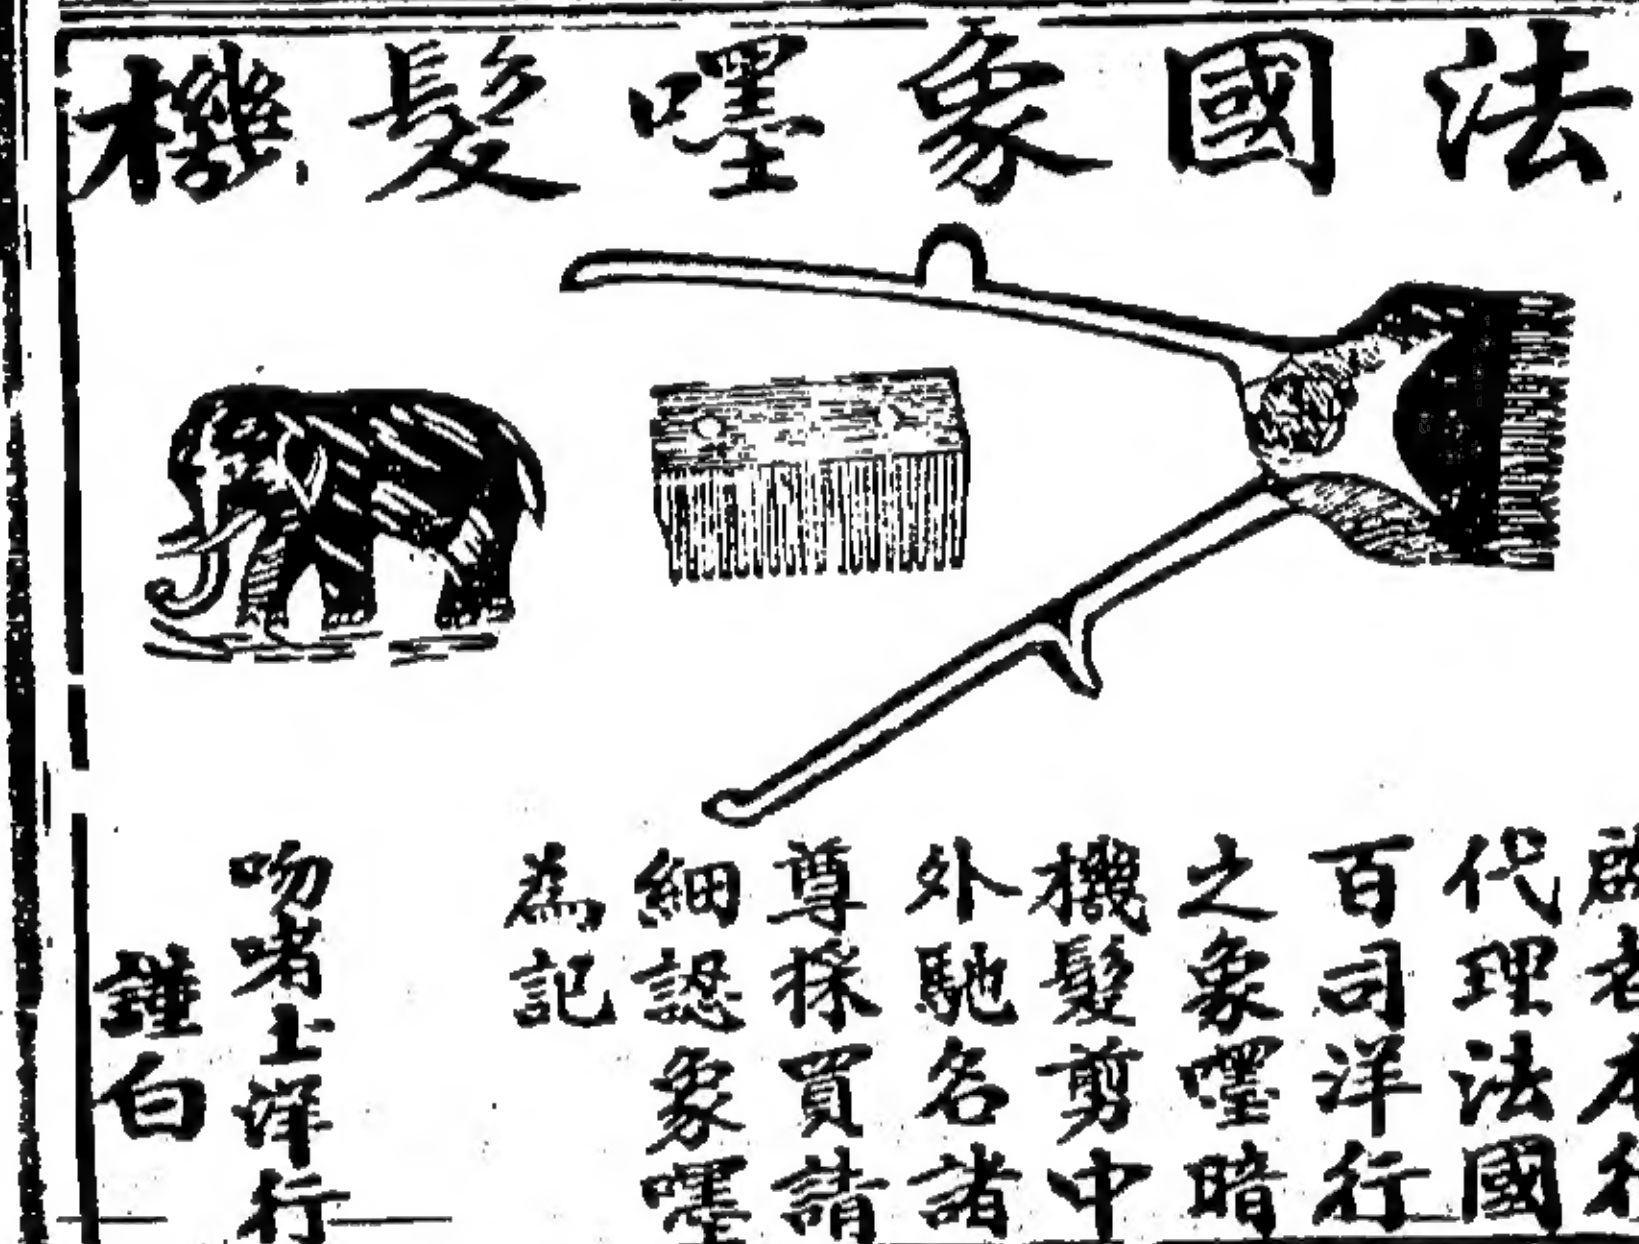 法國象嚜髮機
啟者本行
代理法國
百司洋行
之象嚜暗
機髮剪中
外馳名諸
尊採買請
細認象嚜
為記
吻啫士洋行
謹白